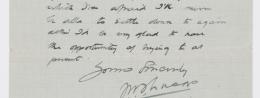 which I am afraid I'll never
be able to settle down to again
still I'd be very glad to have
the opportunity of trying to at
present.
Yours Sincerely